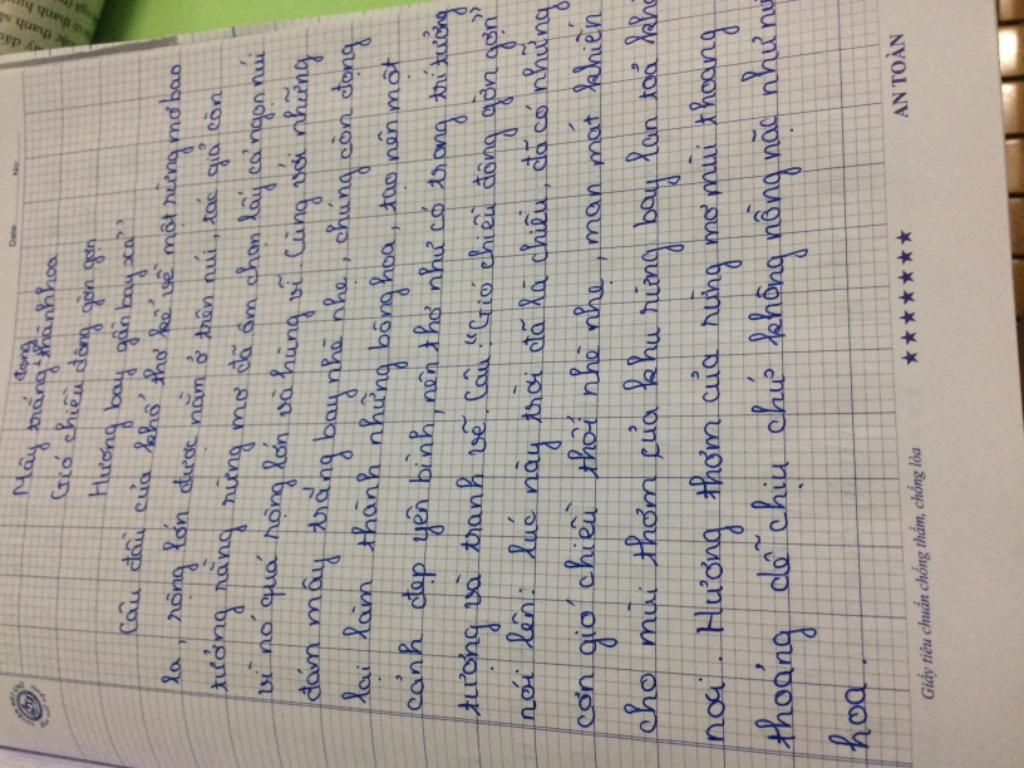 Date    No:
Mây trắng đọng thành hoa
Gió chiều đông gờn gợn
Hương bay gần bay xa"
Câu đầu của khổ thơ kể về một rừng mơ bao
la, rộng lớn được nằm ở trên núi, tác giả còn
tưởng rằng rừng mơ đã ôm chọn lấy cả ngọn núi
vì nó quá rộng lớn và hùng vĩ. Cùng với những
đám mây trắng bay nhè nhẹ, chúng còn đọng
lại làm thành những bông hoa, tạo nên một
cảnh đẹp yên bình, nên thơ như có trong trí tưởng
tượng và tranh vẽ. Câu: "Gió chiều đông gờn gợn"
nói lên: lúc này trời đã là chiều, đã có những
cơn gió chiều thổi nhè nhẹ, man mát khiến
cho mùi thơm của khu rừng bay lan toả khắ
nơi. Hương thơm của rừng mơ mùi thoang
thoảng dễ chịu chứ không nồng nặc như nư
hoa.
Giấy tiêu chuẩn chống thấm, chống lóa
★★★★★★★
AN TOÀN